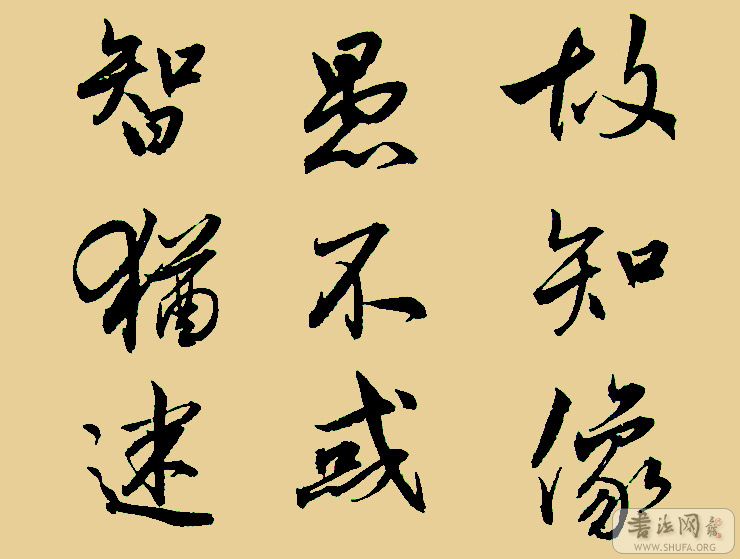 故知像
愚不或
智猶迷
书法网
WWW.SHUFA.ORG